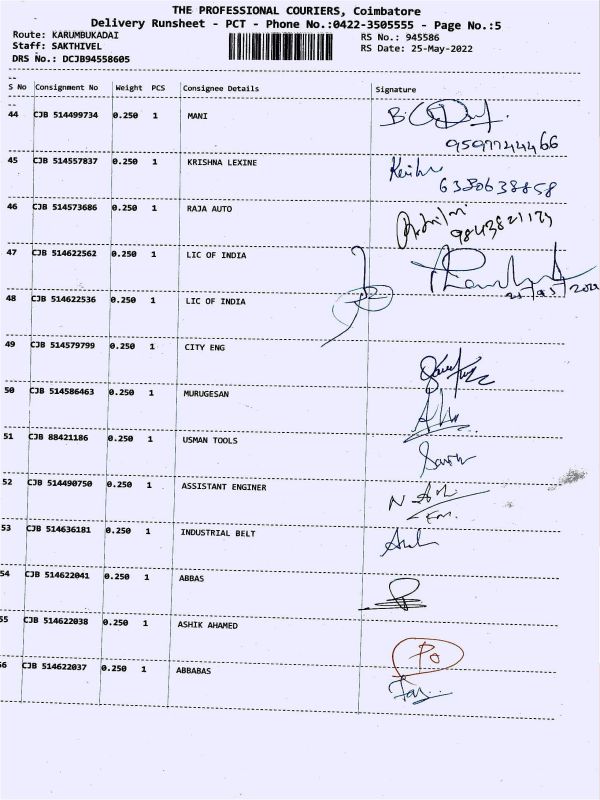 THE PROFESSIONAL COURIERS, Coimbatore
Delivery Runsheet - PCT - Phone No.:0422-3505555 - Page No.:5
Route: KARUMBUKADAI
RS No.: 945586
Staff: SAKTHIVEL
RS Date: 25-May-2022
DRS No.: DCJB94558605
S No Consignment No Weight PCS Consignee Details Signature
44 CJB 514499734 0.250 1 MANI
45 CJB 514557837 0.250 1 KRISHNA LEXINE
6380638858
46 CJB 514573686 0.250 1 RAJA AUTO
47 CJB 514622562 0.250 1 LIC OF INDIA
48 CJB 514622536 0.250 1 LIC OF INDIA
49 CJB 514579799 0.250 1 CITY ENG
50 CJB 514586463 0.250 1 MURUGESAN
51 CJB 88421186 0.250 1 USMAN TOOLS
52 CJB 514490750 0.250 1 ASSISTANT ENGINER
53 CJB 514636181 0.250 1 INDUSTRIAL BELT
54 CJB 514622041 0.250 1 ABBAS
55 CJB 514622038 0.250 1 ASHIK AHAMED
Po
56 CJB 514622037 0.250 1 ABBABAS